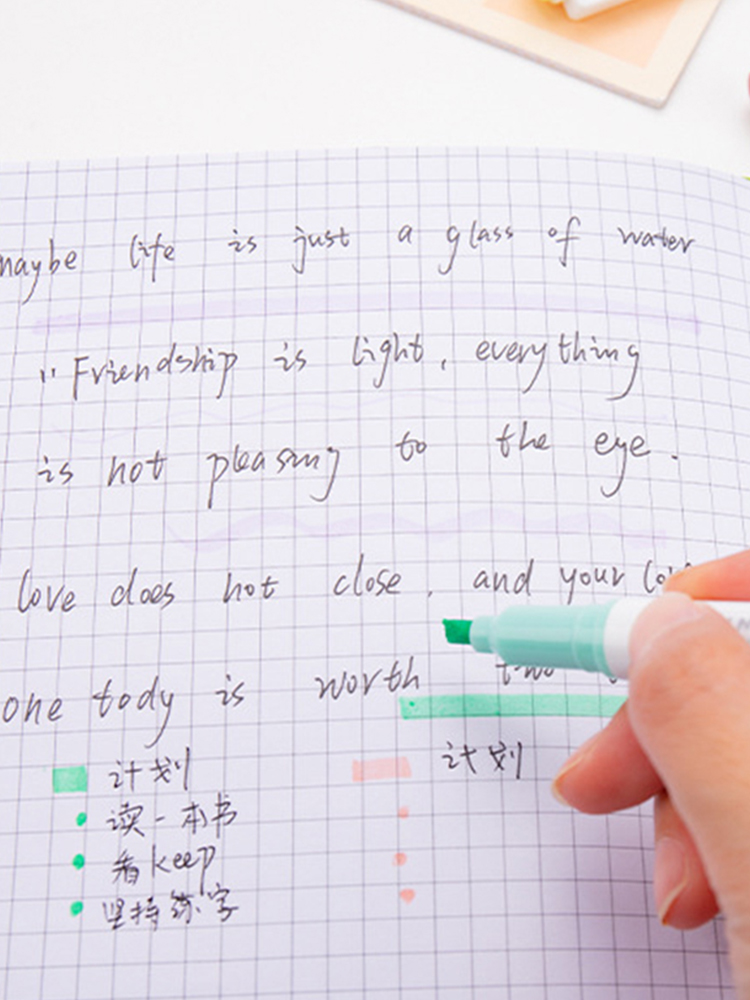 maybe life is just a glass of water
"Friendship is light, everything
is not pleasing to the eye.
love does not close, and your
one tody is worth two
计划 计划
读一本书
看keep
坚持练字